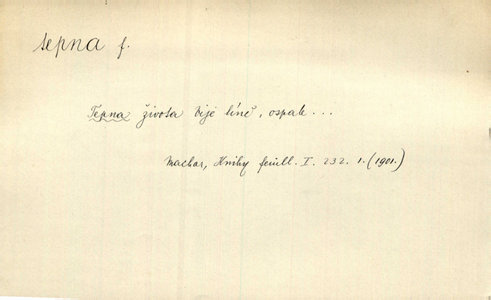 tepna f.
Tepna života bije líně, ospale...
Machar, Knihy feuill. I. 232. 1. (1901.)